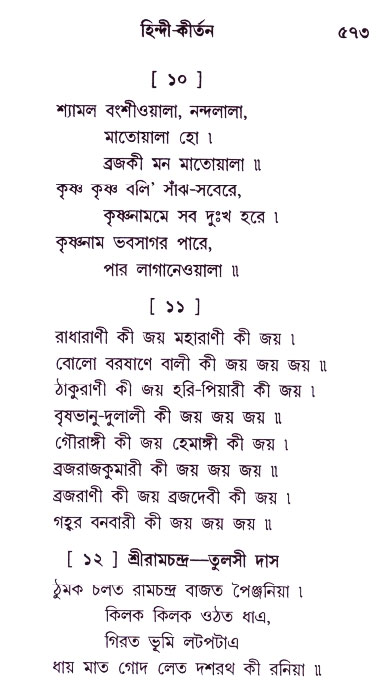 হিন্দী-কীর্তন ৫৭৩
[ ১০ ]
শ্যামল বংশীওয়ালা, নন্দলালা,
মাতোয়ালা হো ।
ব্রজকী মন মাতোয়ালা ॥
কৃষ্ণ কৃষ্ণ বলি' সাঁঝ-সবেরে,
কৃষ্ণনামমে সব দুঃখ হরে ।
কৃষ্ণনাম ভবসাগর পারে,
পার লাগানেওয়ালা ॥
[ ১১ ]
রাধারাণী কী জয় মহারাণী কী জয় ।
বোলো বরষাণে বালী কী জয় জয় জয় ॥
ঠাকুরাণী কী জয় হরি-পিয়ারী কী জয় ।
বৃষভানু-দুলালী কী জয় জয় জয় ॥
গৌরাঙ্গী কী জয় হেমাঙ্গী কী জয় ।
ব্রজরাজকুমারী কী জয় জয় জয় ॥
ব্রজরাণী কী জয় ব্রজদেবী কী জয় ।
গহ্বর বনবারী কী জয় জয় জয় ॥
[ ১২ ] শ্রীরামচন্দ্র—তুলসী দাস
ঠুমক চলত রামচন্দ্র বাজত পৈঞ্জনিয়া ।
কিলক কিলক ওঠত ধাএ,
গিরত ভূমি লটপটাএ
ধায় মাত গোদ লেত দশরথ কী রনিয়া ॥